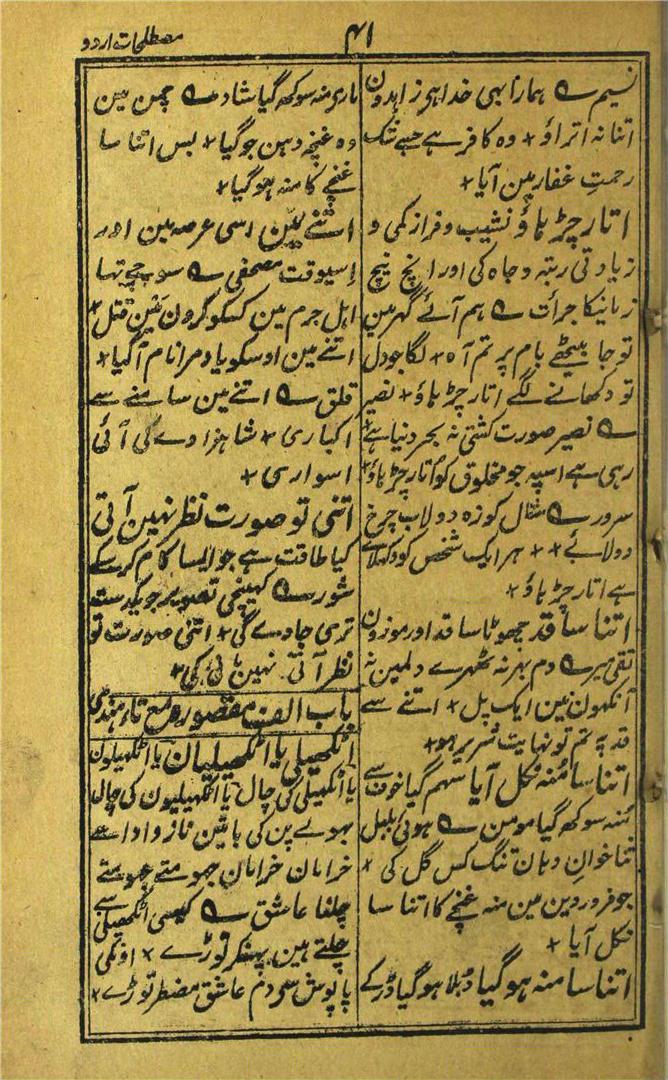 ۴۱
مصطلحات اردو
نسیم ے ہمارا بہی خدا ہی زاہدون
اتنا نہ اتراؤ + وہ کافر ہے جسے شک
رحمتِ غفار مین آیا +
اتار چڑہاؤ نشیب و فراز کمی و
زیادتی رتبہ و جاہ کی اور اونچ نیچ
زمانیکا جرأت ے ہم آئے گہر مین
تو جا بیٹھے بام پر تم آہ + لگا جو دل
تو دکھانے لگے اتار چڑہاؤ + نصیر
ے نصیر صورت کشتی نہ بحر دنیا ہے
رہی ہے اسپہ جو مخلوق کو اتار چڑہاؤ
سرور ے مثال کوزہ دولاب چرخ
دولابے + + ہر ایک شخص کو دکھلاے
ہے اتار چڑہاؤ +
اتنا سا قد چھوٹا سا قد اور موزون
تقی میر ے دم بہر نہ ٹھہرے دلمین نہ
آنکھون مین ایک پل + اتنے سے
قد پہ تم تو نہایت شریر ہو +
اتنا سا مُنہ نکل آیا سہم گیا خوف سے
مُنہ سوکھ گیا مومن ے ہوئی بلبل
ثنا خوانِ دہان تنگ کس گل کی +
جو فروردین مین منہ غنچے کا اتنا سا
نکل آیا +
اتنا سا منہ ہو گیا دُبلا ہو گیا ڈر کے
ماری منہ سوکھ گیا شاد ے چمن مین
وہ غنچہ دہن جو گیا + بس اتنا سا
غنچے کا منہ ہو گیا +
اتنے مین اسی عرصہ مین اور
اسیوقت مصحفی ے سوچے تہا
اہل جرم مین کسکو کرون مَین قتل +
اتنے مین اوسکو یاد مرا نام آگیا +
قلق ے اتنے مین سامنے سے
اکباری + شاہزادے کی آئی
اسواری +
اتنی تو صورت نظر نہین آتی
کیا طاقت ہے جو ایسا کام کر سکے
شور ے کہینچی تصویر جو یکدست
تری جاوے گی + اتنی صورت تو
نظر آتی نہین مانی کی +
باب الف مقصورہ مع تاء ہندی
اٹکھیلی یا اٹکھیلیان یا اٹکھیلیون
یا اٹکھیلی کی چال یا اٹکھیلیون کی چال
بہولے پن کی باتین ناز و ادا سے
خرامان خرامان جھومتے جھومتے
چلنا عاشق ے کیسی اٹکھیلی سے
چلتے ہین پہنکر توڑے + اونکی
پاپوش سی دم عاشق مضطر توڑے +